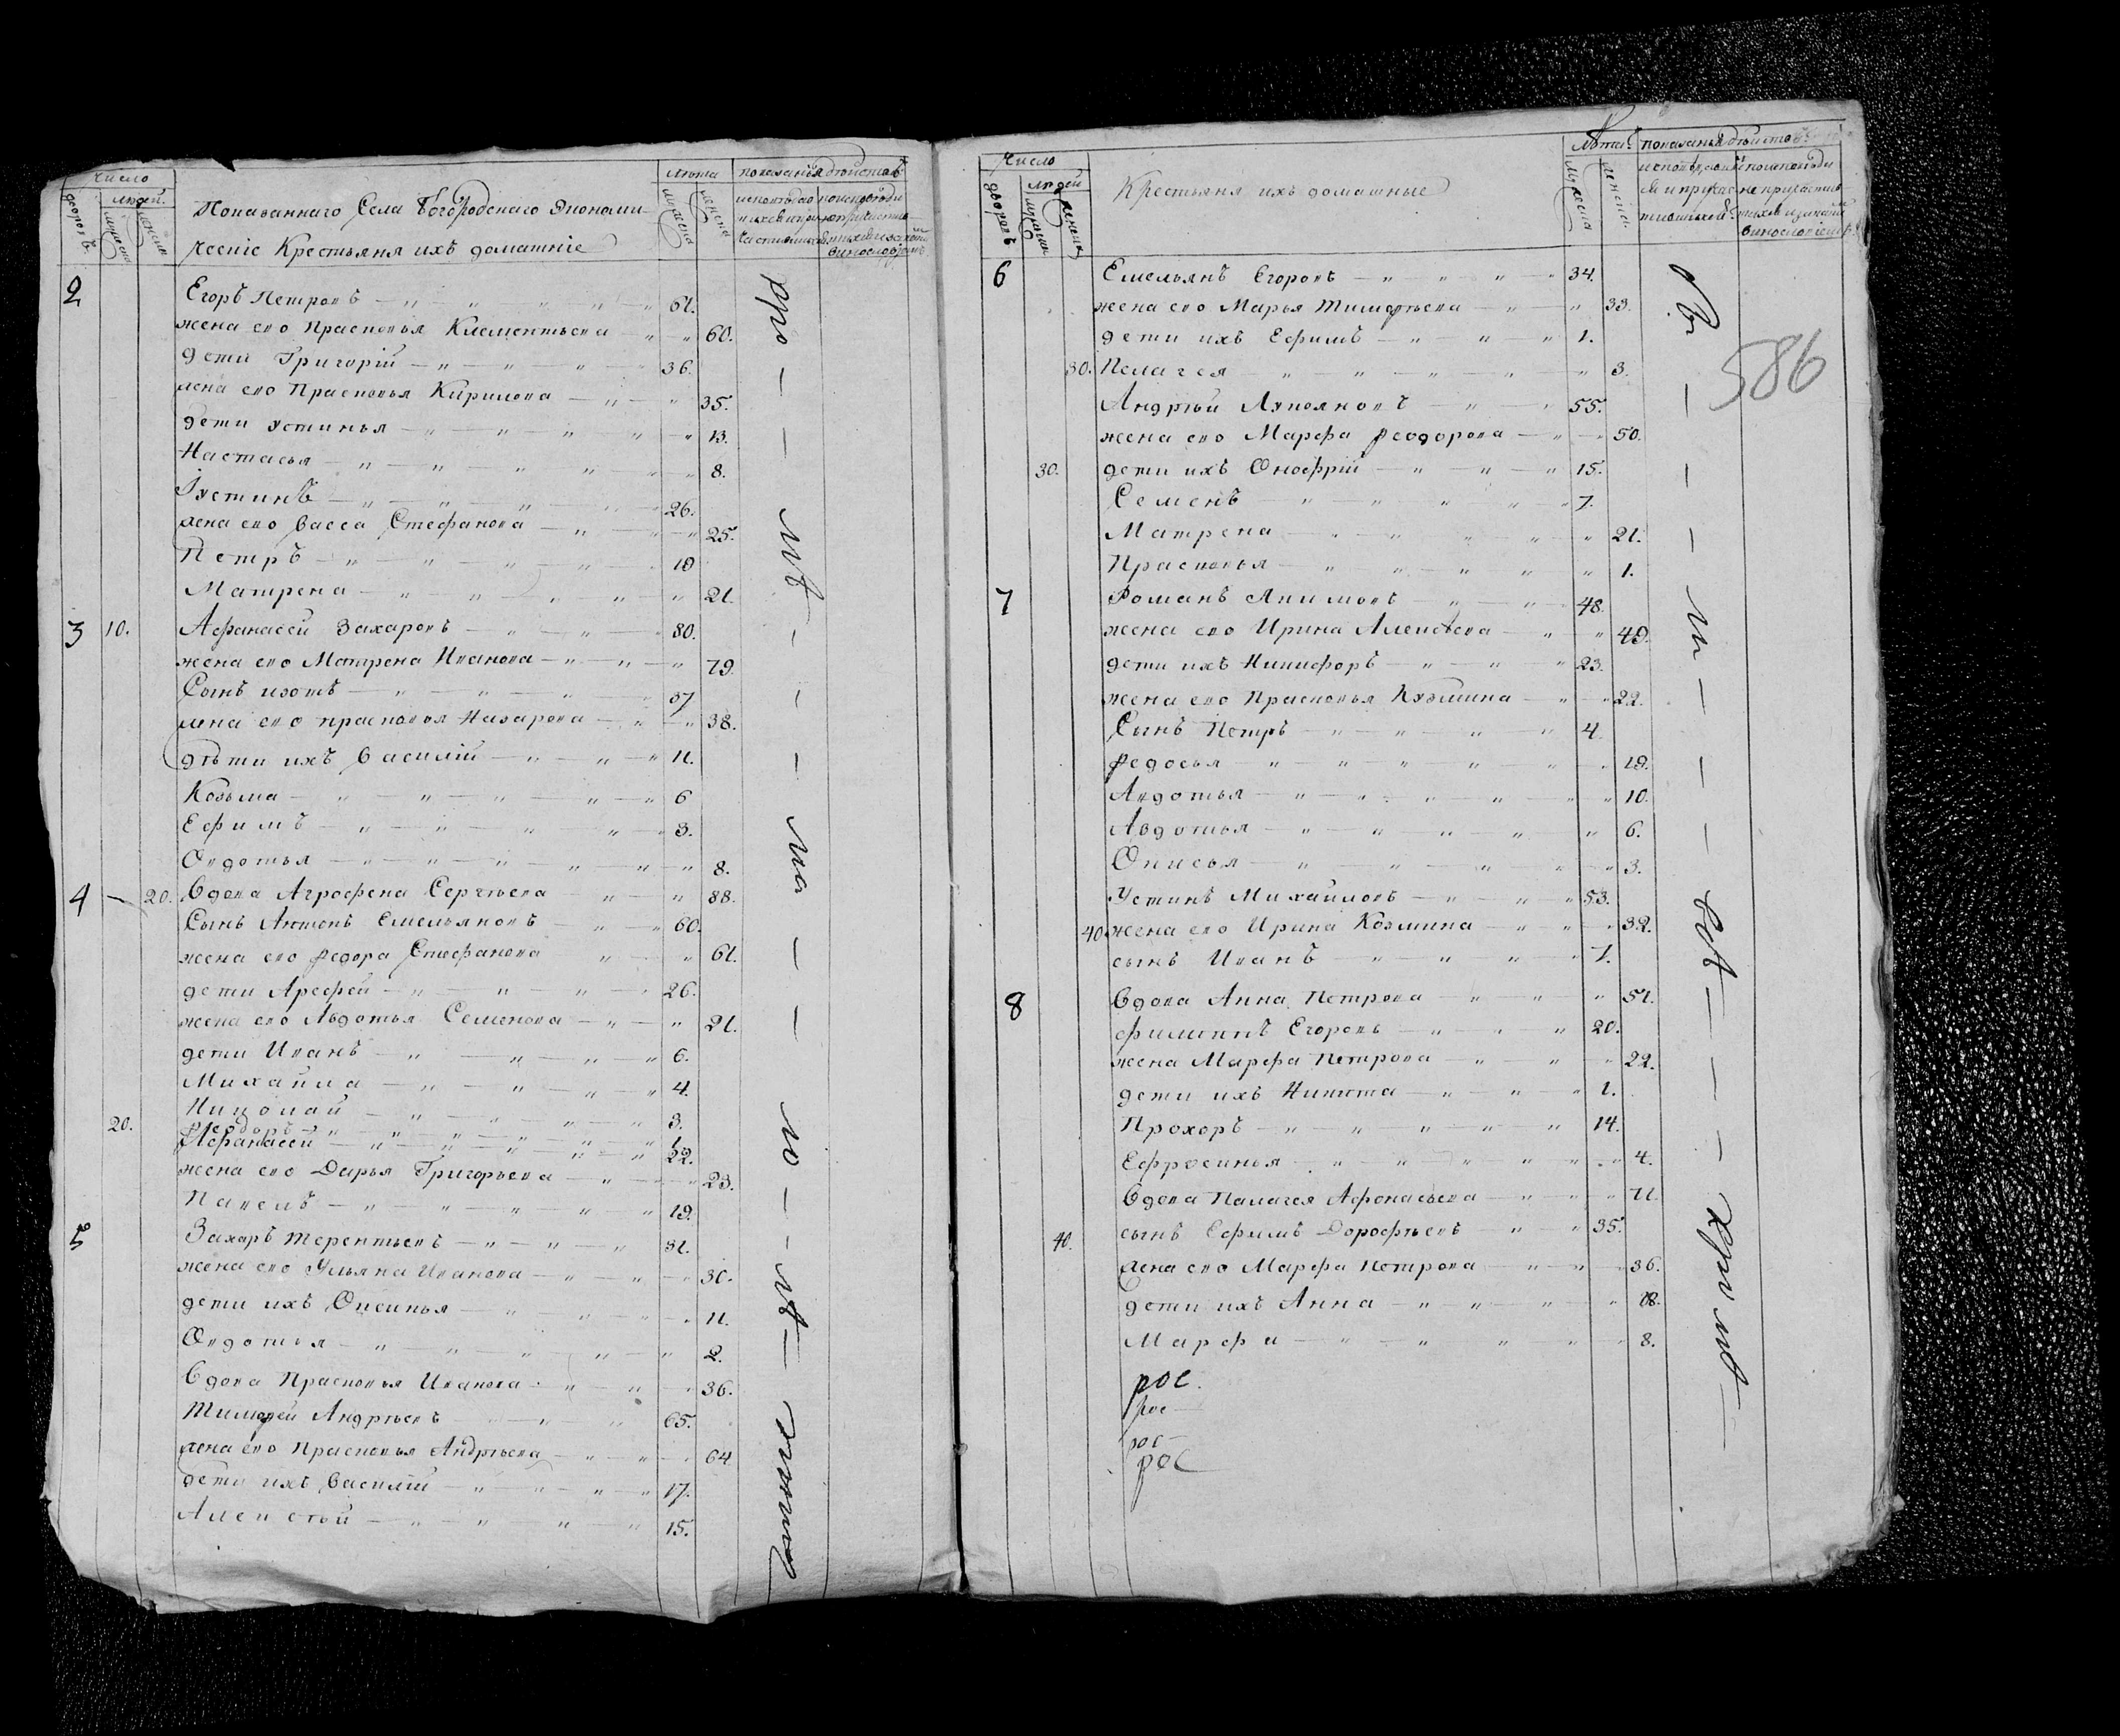 Число
людей.
дворовъ
мужеска
женска
Показаннаго Села Богородскаго Экономи-
ческіе Крестьяня ихъ домашніе
лѣта
мужеска
женска
показанія дѣйствъ
2
Егоръ Петровъ 61.
жена его Прасковья Клементьева 60.
дети Григорій 36.
жена его Прасковья Кирилова 35.
дети Устинья 13.
Настасья 8.
Іустинъ 26.
жена его Васса Стефанова 25.
Петръ 19
Матрена 21.
3 10. Афанасей Захаровъ 80.
жена его Матрена Иванова 79.
Сынъ изотъ 37
жена его прасковья Назарова 38.
дѣти ихъ Василій 11.
Козьма 6
Ефимъ 3.
Овдотья 8.
4 20. Вдова Агрофена Сергѣева 88.
Сынъ Антонъ Емельяновъ 60.
жена его федора Стефанова 61.
дети Арефей 26.
жена его Авдотья Семенова 21.
дети Иванъ 6.
Михайла 4.
Николай 3.
20. федоръ 1.
Афанасей 22.
жена его Дарья Григорьева 23.
Павелъ 19.
5 Захаръ терентьевъ 31.
жена его Ульяна Иванова 30.
дети ихъ Оксинья 11.
Овдотья 2.
Вдова Прасковья Иванова 36.
Тимофей Андрѣевъ 65.
жена его Прасковья Андрѣева 64
дети ихъ Василій 17.
Алексѣй 15.
Число
людей
дворовъ
мужеска
женска
Крестьяня ихъ домашные
Лѣта
мужеска
женска
показанія дѣйствъ
586
6 Емельянъ Егоровъ 34.
жена его Марья Тимофѣева 33.
дети ихъ Ефимъ 1.
30. Пелагея 3.
Андрѣй Лукояновъ 55.
жена его Марфа Феодорова 50.
30. дети ихъ Онофрій 15.
Семенъ 7.
Матрена 21.
Прасковья 1.
7 Романъ Акимовъ 48.
жена его Ирина Алексѣева 49.
дети ихъ Никифоръ 23.
жена его Прасковья Кузмина 22.
Сынъ Петръ 4.
Федосья 19.
Авдотья 10.
Авдотья 6.
Онисья 3.
Устинъ Михайловъ 53.
40. жена его Ирина Козмина 32.
сынъ Иванъ 7.
8 Вдова Анна Петрова 51.
филиппъ Егоровъ 20.
жена Марфа Петрова 22.
дети ихъ Никита 1.
Прохоръ 14.
Ефросинья 4.
Вдова Палагея Афонасьева 71.
40. сынъ Ефимъ Дорофѣевъ 35.
жена его Марфа Петрова 36.
дети ихъ Анна 18.
Марфа 8.
рос.
рос
рос
рос